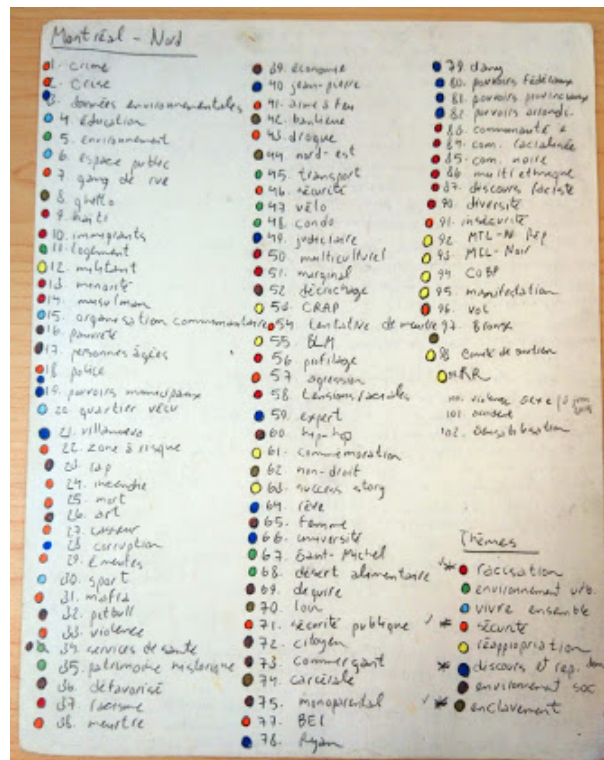 Montréal - Nord
1. crime
2. Crise
3. données environnementales
4. éducation
5. environnement
6. espace public
7. gang de rue
8. ghetto
9. haïti
10. immigrants
11. logement
12. militant
13. minorité
14. musulman
15. organisation communautaire
16. pauvreté
17. personnes âgées
18. police
19. pouvoirs municipaux
20. quartier vécu
21. villanueva
22. zone à risque
23. rap
24. incendie
25. mort
26. art
27. casseur
28. corruption
29. Émeutes
30. sport
31. mafia
32. pitbull
33. violence
34. services de santé
35. patrimoine historique
36. défavorisé
37. racisme
38. meurtre
39. économie
40. jean-pierre
41. arme à feu
42. banlieue
43. drogue
44. nord-est
45. transport
46. sécurité
47. vélo
48. condo
49. judiciaire
50. multiculturel
51. marginal
52. décrochage
53. CRAP
54. tentative de meurtre
55. BLM
56. profilage
57. agression
58. tensions raciales
59. expert
60. hip-hop
61. commémoration
62. non-droit
63. success story
64. rêve
65. femme
66. université
67. Saint-Michel
68. désert alimentaire
69. deguire
70. loin
71. sécurité publique
72. citoyen
73. commerçant
74. carcérale
75. monoparental
77. BEI
78. Ryan
79. dany
80. pouvoirs fédéraux
81. pouvoirs provinciaux
82. pouvoirs arrondi.
83. communauté
84. com. racialisée
85. com. noire
86. multiethnique
87. discours raciste
90. diversité
91. insécurité
92. MTL-N Rep
93. MTL-Noir
94. COBP
95. manifestation
96. vol
97. Bronx
98. Comité de soutien
RR
100. violence sexe
101. accident
102. sensibilisation
Thèmes
racisation
environnement urb.
vivre ensemble
sécurité
réappropriation
discours et rep. dom
environnement soc
enclavement